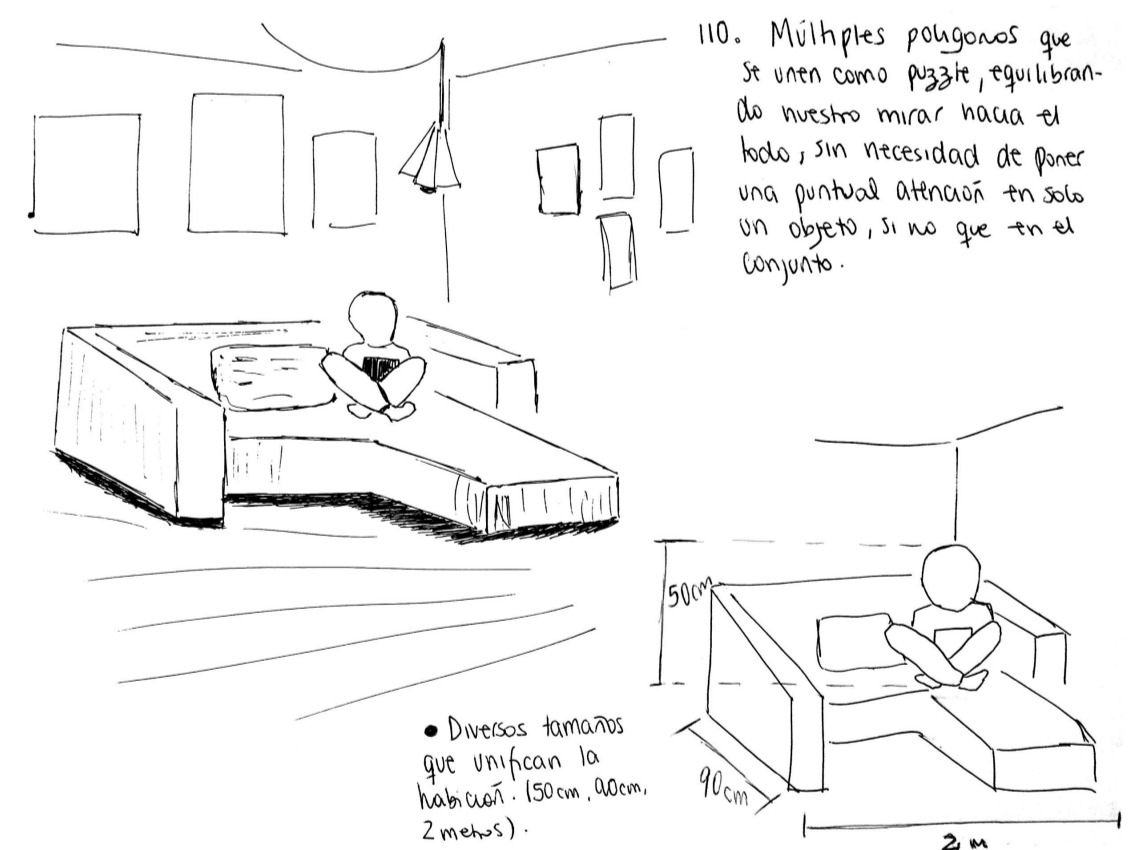 110. Múltiples polígonos que
se unen como puzzle, equilibran-
do nuestro mirar hacia el
todo, sin necesidad de poner
una puntual atención en solo
un objeto, si no que en el
conjunto.
50cm
90cm
2 m
• Diversos tamaños
que unifican la
habición. (50cm, 90cm,
2 metros).